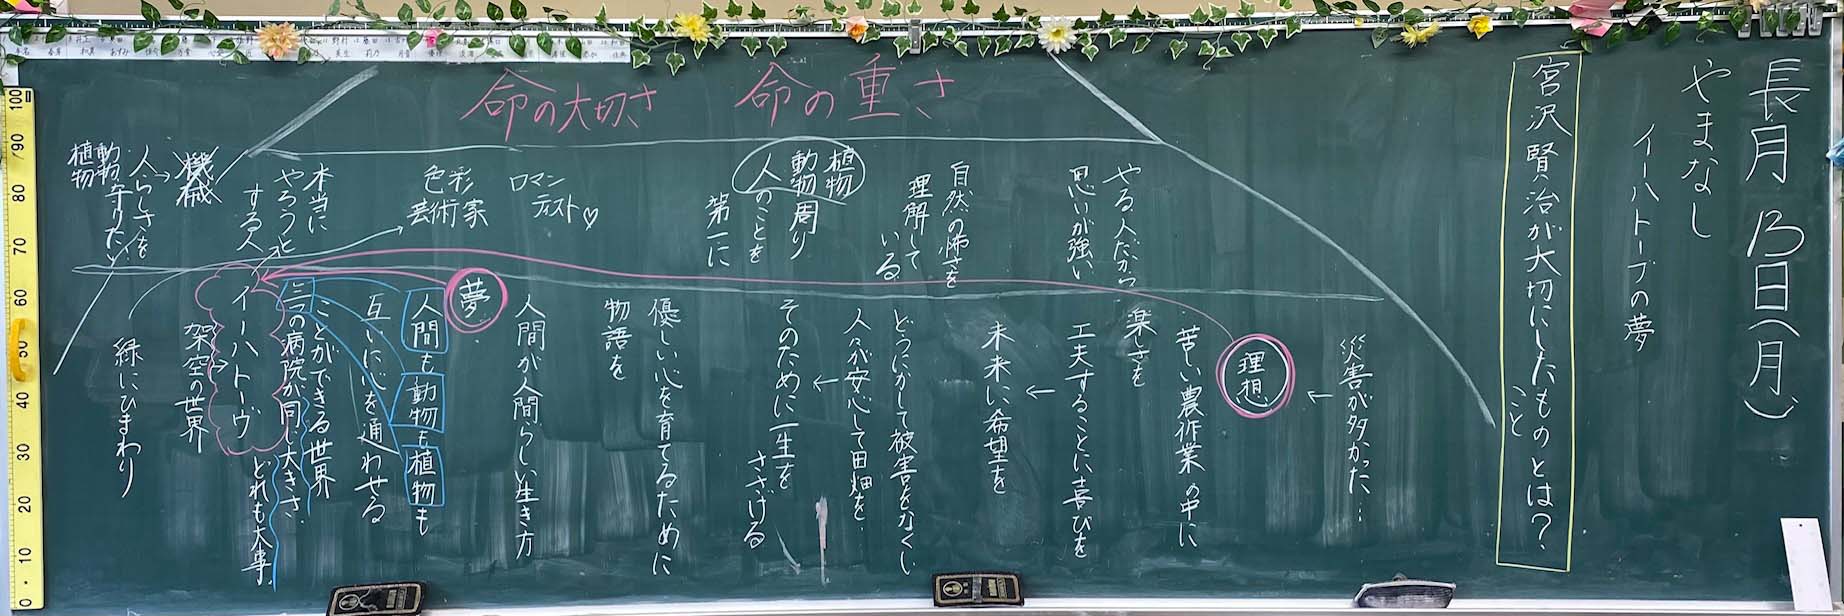 長月13日(月)
やまなし
イーハトーブの夢
宮沢賢治が大切にしたものとは?
こと
命の大切さ
命の重さ
やる人だから
思いが強い
自然の怖さを
理解して
いる
植物
動物周り
人のことを
第一に
ロマン
ティスト♡
色彩
芸術家
本当に
やろうと
する人
機械
人らしさを
動物守りたい
植物
災害が多かった…
理想
苦しい農作業の中に
楽しさを
工夫することに喜びを
未来に希望を
どうにかして被害をなくし
人々が安心して田畑を
そのために一生を
ささげる
優しい心を育てるために
物語を
人間が人間らしい生き方
夢
人間も動物も植物も
互いに心を通わせる
ことができる世界
三つの病院が同じ大きさ
どれも大事
イーハトーヴ
架空の世界
緑にひまわり
100
90
80
70
60
50
40
30
20
10
0